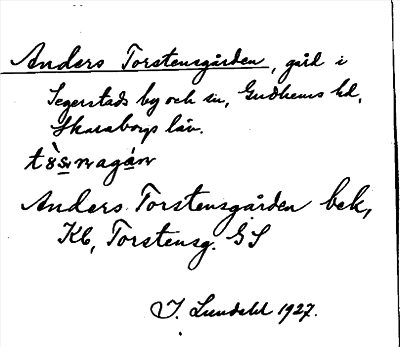 Anders Torstensgården, gård i
Segerstads by och sn, Gudhems hd,
Skaraborgs län.
Anders Torstensgården bek,
Kb, Torstensg. GS
J. Lundahl 1927.